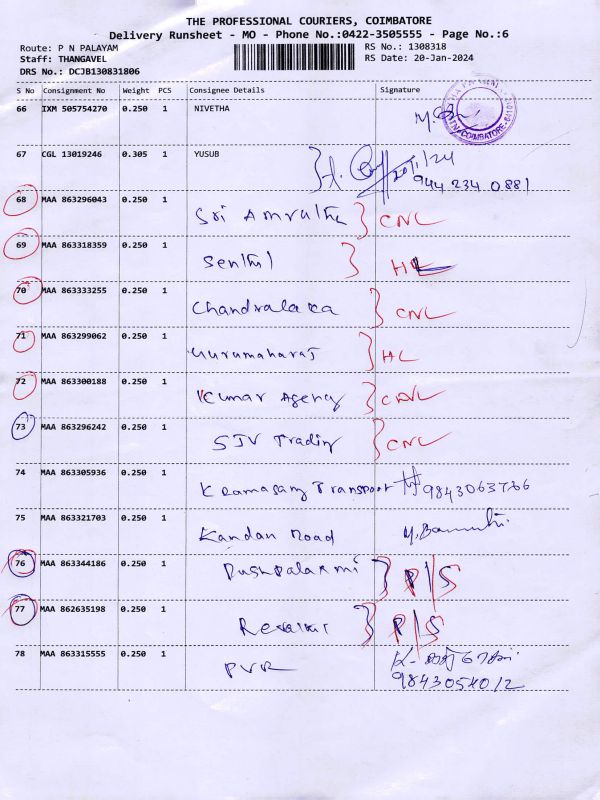 THE PROFESSIONAL COURIERS, COIMBATORE
Delivery Runsheet - MO - Phone No.:0422-3505555 - Page No.:6
Route: P N PALAYAM
RS No.: 1308318
Staff: THANGAVEL
RS Date: 20-Jan-2024
DRS No.: DCJB130831806
S No Consignment No Weight PCS Consignee Details Signature
66 IXM 505754270 0.250 1 NIVETHA
COIMBATORE
67 CGL 13019246 0.305 1 YUSUB
944 234 0881
68 MAA 863296043 0.250 1
Sri Amrutha CNL
69 MAA 863318359 0.250 1
Senthil HL
70 MAA 863333255 0.250 1
Chandralaka CNL
71 MAA 863299062 0.250 1
Gurumaharaj HL
72 MAA 863300188 0.250 1
Kumar Agency CNL
73 MAA 863296242 0.250 1
SJV Trading CNL
74 MAA 863305936 0.250 1
K Ramasamy Transport 9843063766
75 MAA 863321703 0.250 1
Kandan Road
76 MAA 863344186 0.250 1
Pushpalaxmi P/S
77 MAA 862635198 0.250 1
P/S
78 MAA 863315555 0.250 1
PVR
9843054012